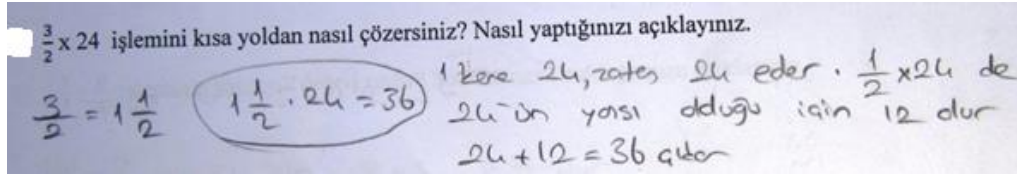 3/2 x 24 işlemini kısa yoldan nasıl çözersiniz? Nasıl yaptığınızı açıklayınız.
3/2 = 1 1/2
1 1/2 . 24 = 36
1 kere 24, zaten 24 eder. 1/2 x 24 de
24'ün yarısı olduğu için 12 dur
24 + 12 = 36 çıkar